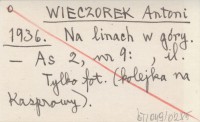 WIECZOREK Antoni
1936. Na linach w góry.
— As 2, nr 9: , il.
Tylko fot. (kolejka na
Kasprowy).